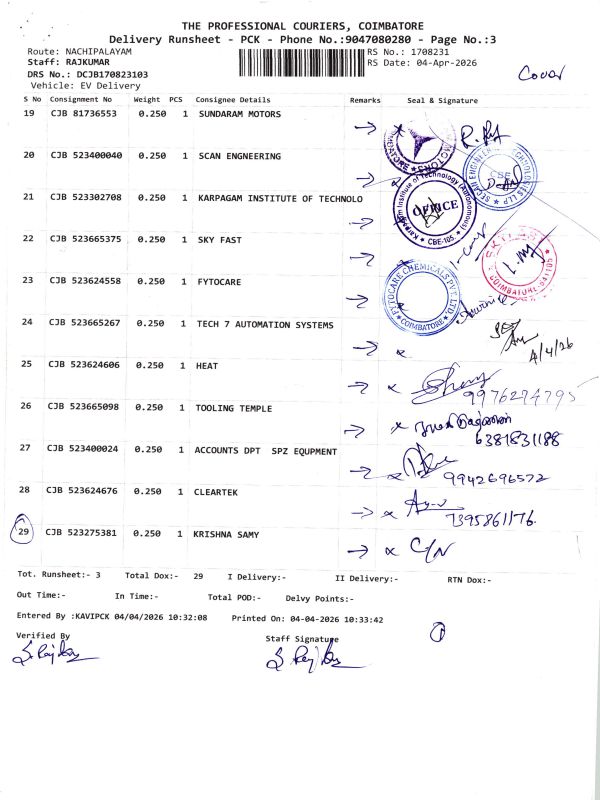 THE PROFESSIONAL COURIERS, COIMBATORE
Delivery Runsheet - PCK - Phone No.:9047080280 - Page No.:3
Route: NACHIPALAYAM RS No.: 1708231
Staff: RAJKUMAR RS Date: 04-Apr-2026
DRS No.: DCJB170823103
Vehicle: EV Delivery
Cover
S No Consignment No Weight PCS Consignee Details Remarks Seal & Signature
19 CJB 81736553 0.250 1 SUNDARAM MOTORS
20 CJB 523400040 0.250 1 SCAN ENGNEERING
21 CJB 523302708 0.250 1 KARPAGAM INSTITUTE OF TECHNOLO
OFFICE
Karpagam Institute of Technology (Autonomous)
CBE-105
22 CJB 523665375 0.250 1 SKY FAST
COIMBATORE-641105
23 CJB 523624558 0.250 1 FYTOCARE
FYTOCARE CHEMICALS PVT. LTD
COIMBATORE
24 CJB 523665267 0.250 1 TECH 7 AUTOMATION SYSTEMS
4/4/26
25 CJB 523624606 0.250 1 HEAT
9976274795
26 CJB 523665098 0.250 1 TOOLING TEMPLE
6381831188
27 CJB 523400024 0.250 1 ACCOUNTS DPT SPZ EQUPMENT
9942696572
28 CJB 523624676 0.250 1 CLEARTEK
7395861176
29 CJB 523275381 0.250 1 KRISHNA SAMY
C/N
Tot. Runsheet:- 3 Total Dox:- 29 I Delivery:- II Delivery:- RTN Dox:-
Out Time:- In Time:- Total POD:- Delvy Points:-
Entered By :KAVIPCK 04/04/2026 10:32:08 Printed On: 04-04-2026 10:33:42
Verified By Staff Signature